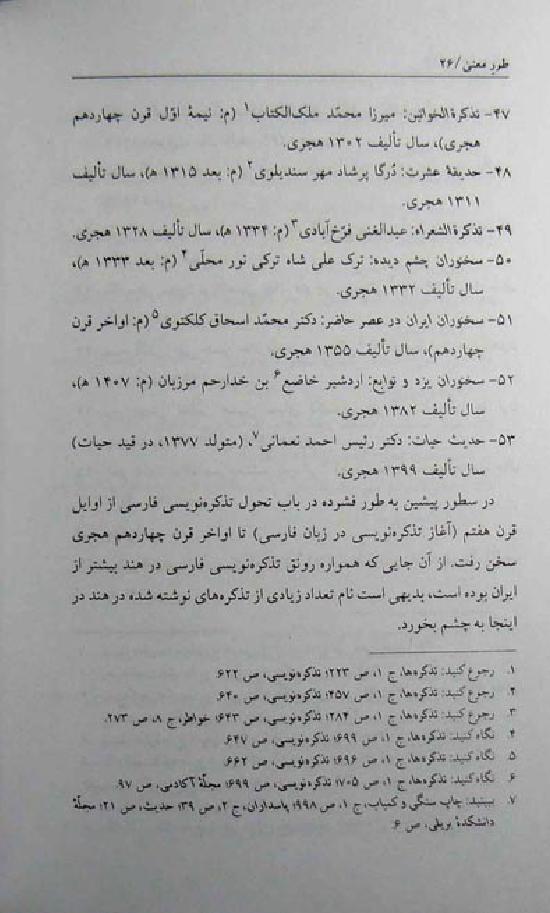 طورِ معنی / ۲۶
۴۷- تذکرة‌الخواتین: میرزا محمّد ملک‌الکتاب۱ (م: نیمهٔ اوّل قرن چهاردهم
هجری)، سال تألیف ۱۳۰۲ هجری.
۴۸- حدیقهٔ عشرت: دُرگا پرشاد مهر سندیلوی۲ (م: بعد ۱۳۱۵ ه‍)، سال تألیف
۱۳۱۱ هجری.
۴۹- تذکرة‌الشعراء: عبدالغنی فرّخ‌آبادی۳ (م: ۱۳۳۴ ه‍)، سال تألیف ۱۳۲۸ هجری.
۵۰- سخنوران چشم دیده: ترک علی شاه ترکی نور محلّی۴ (م: بعد ۱۳۳۳ ه‍)،
سال تألیف ۱۳۳۲ هجری.
۵۱- سخنوران ایران در عصر حاضر: دکتر محمّد اسحاق کلکتوی۵ (م: اواخر قرن
چهاردهم)، سال تألیف ۱۳۵۵ هجری.
۵۲- سخنوران یزد و توابع: اردشیر خاضع۶ بن خدارحم مرزبان (م: ۱۴۰۷ ه‍)،
سال تألیف ۱۳۸۲ هجری.
۵۳- حدیث حیات: دکتر رئیس احمد نعمانی۷، (متولد ۱۳۷۷، در قید حیات)
سال تألیف ۱۳۹۹ هجری.
در سطور پیشین به طور فشرده در باب تحول تذکره‌نویسی فارسی از اوایل
قرن هفتم (آغاز تذکره‌نویسی در زبان فارسی) تا اواخر قرن چهاردهم هجری
سخن رفت. از آن جایی که همواره رونق تذکره‌نویسی فارسی در هند پیشتر از
ایران بوده است، بدیهی است نام تعداد زیادی از تذکره‌های نوشته شده در هند در
اینجا به چشم بخورد.
۱. رجوع کنید: تذکره‌ها، ج ۱، ص ۲۲۳؛ تذکره‌نویسی، ص ۶۲۲.
۲. رجوع کنید: تذکره‌ها، ج ۱، ص ۴۵۷؛ تذکره‌نویسی، ص ۶۴۰.
۳. رجوع کنید: تذکره‌ها، ج ۱، ص ۲۸۴؛ تذکره‌نویسی، ص ۶۴۳؛ خواطر، ج ۸، ص ۲۷۳.
۴. نگاه کنید: تذکره‌ها، ج ۱، ص ۶۹۹؛ تذکره‌نویسی، ص ۶۴۷.
۵. نگاه کنید: تذکره‌ها، ج ۱، ص ۶۹۶؛ تذکره‌نویسی، ص ۶۶۲.
۶. نگاه کنید: تذکره‌ها، ج ۱، ص ۷۰۵؛ تذکره‌نویسی، ص ۶۹۹؛ مجلّهٔ آکادمی، ص ۹۷.
۷. ببینید: چاپ سنگی و کمیاب، ج ۱، ص ۹۹۸؛ پاسداران، ج ۲، ص ۳۹؛ حدیث، ص ۲۱؛ مجلّهٔ
دانشکدهٔ بریلی، ص ۶.